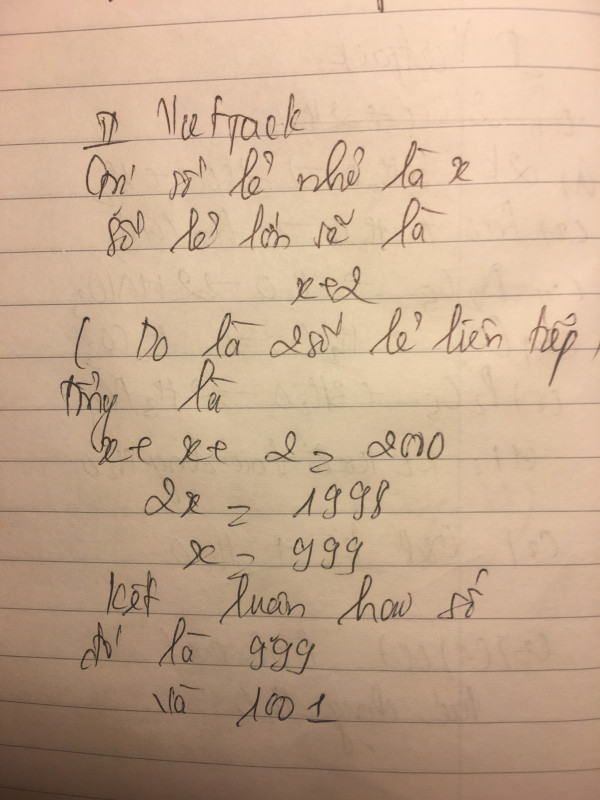 II Vietjack
Gọi số lẻ nhỏ là x
số lẻ lớn sẽ là
x+2
( Do là 2 số lẻ liên tiếp)
Tổng là
x+ x+ 2 = 2000
2x = 1998
x = 999
Kết luân hai số
đó là 999
và 1001